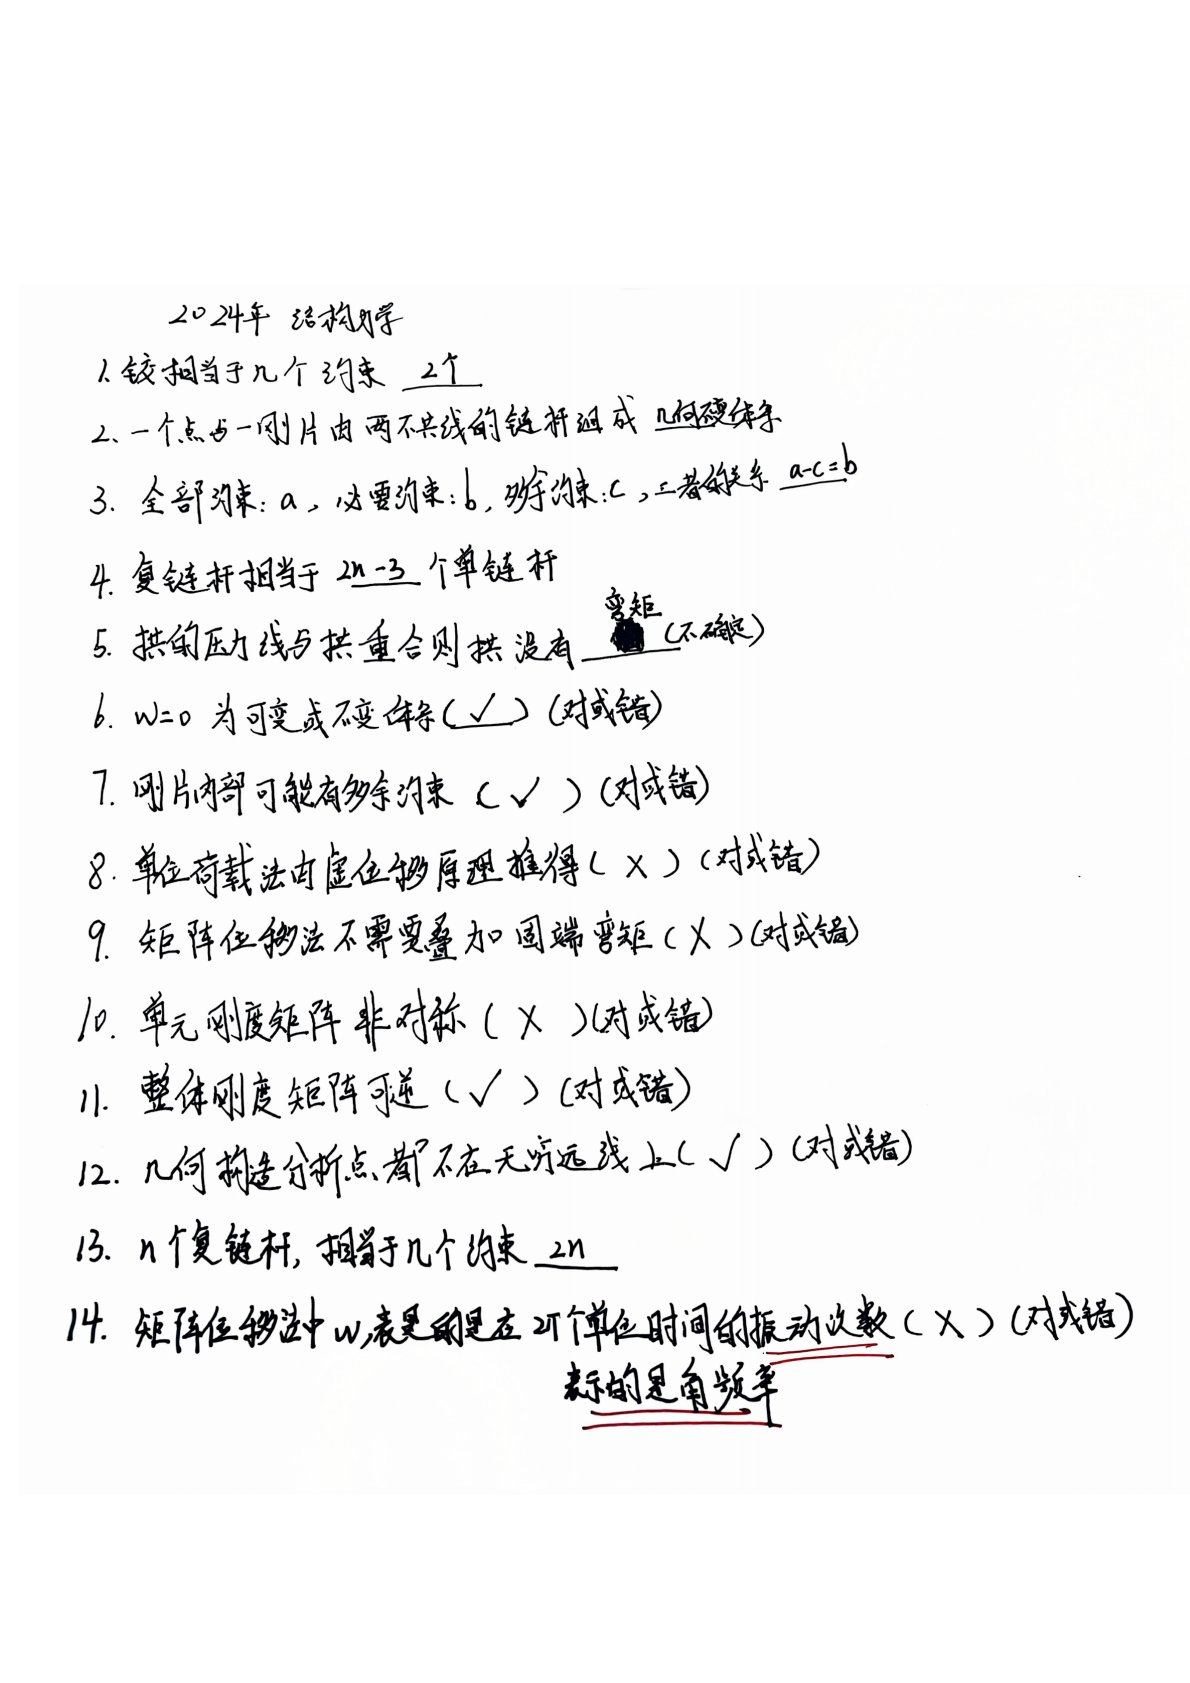 2024年 结构力学
1. 铰相当于几个约束 2个
2. 一个点与一刚片由两不共线的链杆组成 几何不变体系
3. 全部约束: a, 必要约束: b, 多余约束: c, 三者的关系 a-c=b
4. 复链杆相当于 2n-3 个单链杆
5. 拱的压力线与拱重合则拱没有 弯矩 (不确定)
6. W=0 为可变或不变体系 (✓) (对或错)
7. 刚片内部可能有多余约束 (✓) (对或错)
8. 单位荷载法由虚位移原理推得 (×) (对或错)
9. 矩阵位移法不需要叠加固端弯矩 (×) (对或错)
10. 单元刚度矩阵非对称 (×) (对或错)
11. 整体刚度矩阵可逆 (✓) (对或错)
12. 几何构造分析点都不在无穷远线上 (✓) (对或错)
13. n个复链杆, 相当于几个约束 2n
14. 矩阵位移法中 w, 表是的是在 2π个单位时间的振动次数 (×) (对或错)
表示的是角频率